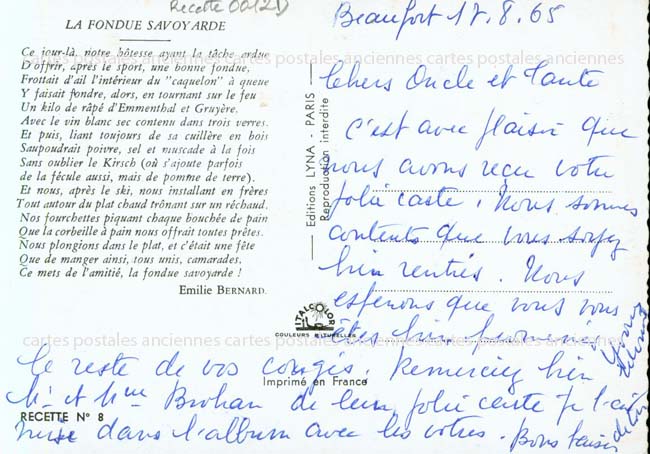 Recette 0012D
LA FONDUE SAVOYARDE
Ce jour-là, notre hôtesse ayant la tâche ardue
D'offrir, après le sport, une bonne fondue,
Frottait d'ail l'intérieur du "caquelon" à queue
Y faisait fondre, alors, en tournant sur le feu
Un kilo de râpé d'Emmenthal et Gruyère.
Avec le vin blanc sec contenu dans trois verres.
Et puis, liant toujours de sa cuillère en bois
Saupoudrait poivre, sel et muscade à la fois
Sans oublier le Kirsch (où s'ajoute parfois
de la fécule aussi, mais de pomme de terre).
Et nous, après le ski, nous installant en frères
Tout autour du plat chaud trônant sur un réchaud.
Nos fourchettes piquant chaque bouchée de pain
Que la corbeille à pain nous offrait toutes prêtes.
Nous plongions dans le plat, et c'était une fête
Que de manger ainsi, tous unis, camarades,
Ce mets de l'amitié, la fondue savoyarde !
Emilie BERNARD.
RECETTE N° 8
Editions LYNA - PARIS
Reproduction interdite
ITALCOLOR
COULEURS NATURELLES
Imprimé en France
Beaufort 17.8.65
Chers Oncle et Tante
C'est avec plaisir que
nous avons reçu votre
jolie carte. Nous sommes
contents que vous soyez
bien rentrés. Nous
espérons que vous vous
êtes bien
le reste de vos congés. Remerciez bien
Mr et Mme Brohan de leur jolie carte je l'ai
mise dans l'album avec les vôtres. Bons baisers
cartes postales anciennes cartes postales anciennes cartes postales anciennes
cartes postales anciennes cartes postales anciennes cartes postales anciennes